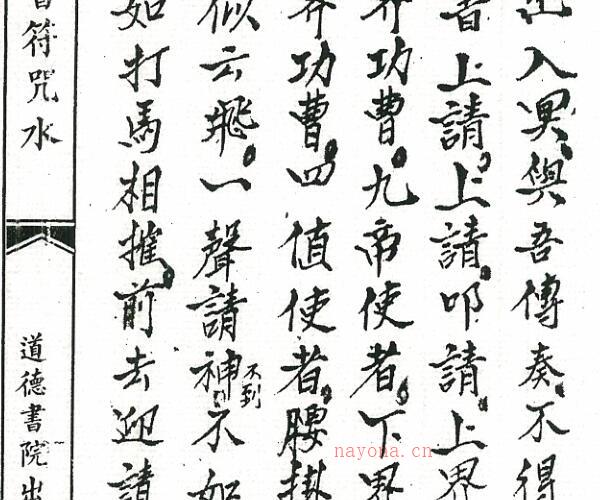 出入冥與吾傳奏不得
者上請上請叩請上界
界功曹九帝使者下界
界功曹四值使者腰掛
似云飛一聲請神不到不如
如打馬相摧前去迎請
符咒水
道德書院出
nayona.cn